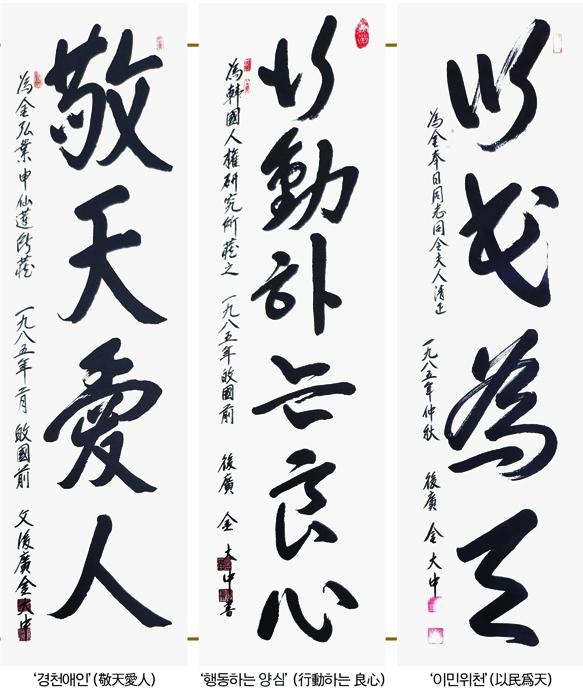 敬天愛人
為金弘業申仙蓮所藏 一九八五年二月 歸國前 父後廣金大中
行動하는良心
為韓國人權研究所藏之 一九八五年歸國前 後廣 金大中 書
以民為天
為金奉日同志同令夫人清正
一九八三年仲秋 後廣 金大中
'경천애인' (敬天愛人)
'행동하는 양심' (行動하는 良心)
'이민위천' (以民爲天)